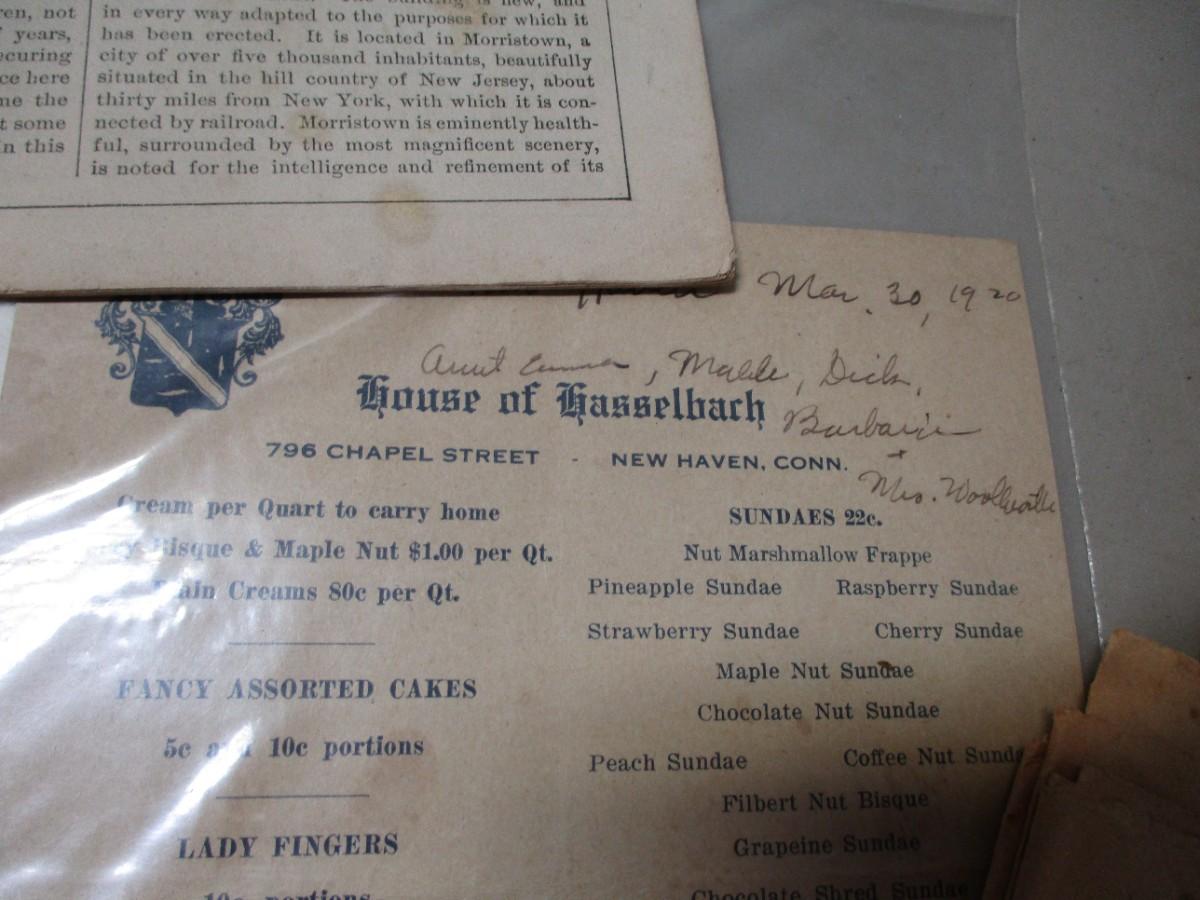 ren, not
years,
ecuring
ce here
me the
t some
in this
building is new, and
in every way adapted to the purposes for which it
has been erected. It is located in Morristown, a
city of over five thousand inhabitants, beautifully
situated in the hill country of New Jersey, about
thirty miles from New York, with which it is con-
nected by railroad. Morristown is eminently health-
ful, surrounded by the most magnificent scenery,
is noted for the intelligence and refinement of its
Mar. 30, 1920
Aunt Emma, Dick,
House of Hasselbach
796 CHAPEL STREET - NEW HAVEN, CONN.
+
Mrs.
Cream per Quart to carry home
Bisque & Maple Nut $1.00 per Qt.
Plain Creams 80c per Qt.
FANCY ASSORTED CAKES
5c and 10c portions
LADY FINGERS
10c portions
SUNDAES 22c.
Nut Marshmallow Frappe
Pineapple Sundae Raspberry Sundae
Strawberry Sundae Cherry Sundae
Maple Nut Sundae
Chocolate Nut Sundae
Peach Sundae Coffee Nut Sunda
Filbert Nut Bisque
Grapeine Sundae
Chocolate Shred Sundae